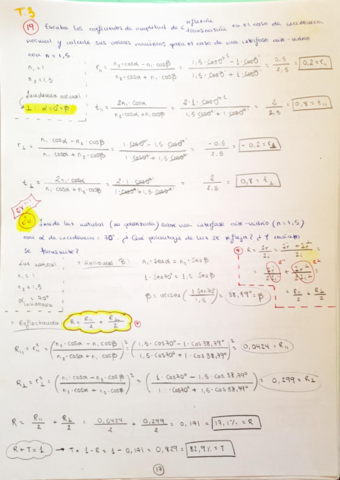 T.3
(19) Escriba los coeficientes de amplitud de reflexión transmisión en el caso de incidencia
normal y calcule sus valores numéricos para el caso de una interfase aire-vidrio
con n = 1,5
n₁ = 1
n₂ = 1,5
Incidencia normal
α = 0° = β
r∥ = (n₂·cosα - n₁·cosβ)/(n₂·cosα + n₁·cosβ) = (1,5·cos0° - 1·cos0°)/(1,5·cos0° + 1·cos0°) = 0,2 = r∥
t∥ = 2n₁·cosα/(n₂·cosα + n₁·cosβ) = 2·1·cos0°/(1,5·cos0° + 1·cos0°) = 2/2,5 = 0,8 = t∥
r⊥ = (n₁·cosα - n₂·cosβ)/(n₁·cosα + n₂·cosβ) = (1·cos0° - 1,5·cos0°)/(1·cos0° + 1,5·cos0°) = -0,5/2,5 = -0,2 = r⊥
t⊥ = 2n₁·cosα/(n₁·cosα + n₂·cosβ) = 2·1·cos0°/(1·cos0° + 1,5·cos0°) = 2/2,5 = 0,8 = t⊥
Incide luz natural (no polarizada) sobre una interfase aire-vidrio (n = 1,5)
con α de incidencia = 70° ¿Qué porcentaje de luz se refleja? ¿Y
se transmite?
Luz natural
n₁ = 1
n₂ = 1,5
α = 70°
n₁·senα = n₂·senβ
1·sen70° = 1,5·senβ
β = arcsen(1·sen70°/1,5) = 38,79° = β
R = R∥/2 + R⊥/2
R∥ = r∥² = ((n₂·cosα - n₁·cosβ)/(n₂·cosα + n₁·cosβ))² = ((1,5·cos70° - 1·cos38,79°)/(1,5·cos70° + 1·cos38,79°))² = 0,0424 = R∥
R⊥ = r⊥² = ((n₁·cosα - n₂·cosβ)/(n₁·cosα + n₂·cosβ))² = ((1·cos70° - 1,5·cos38,79°)/(1·cos70° + 1,5·cos38,79°))² = 0,299 = R⊥
R = R∥/2 + R⊥/2 = 0,0424/2 + 0,299/2 = 0,171 = 17,1% = R
R + T = 1 → T = 1 - R = 1 - 0,171 = 0,829 = 82,9% = T